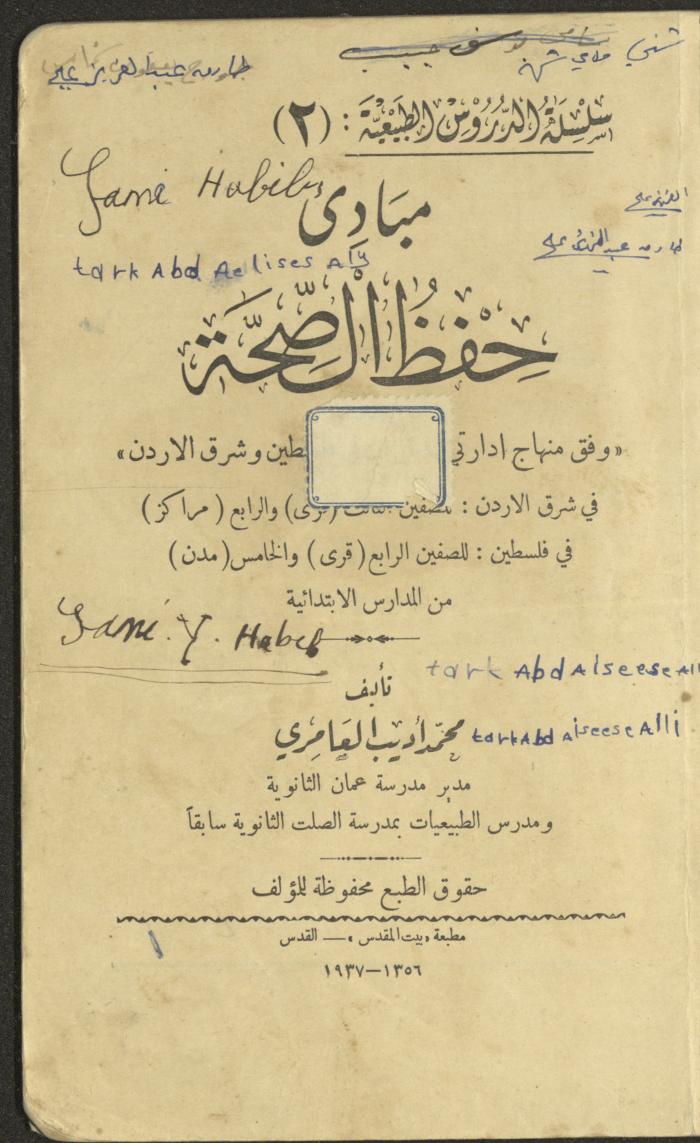 طارق عبد العزيز علي
سلسلة الدروس الطبيعية : (٢)
Sami Habiby
مبادئ
العزيز علي
طارق عبد العزيز علي
tark Abd Aelises Aly
حِفْظُ الصِّحَّة
«وفق منهاج ادارتي طين وشرق الاردن»
في شرق الاردن : للصفين الثالث (قرى) والرابع (مراكز)
في فلسطين : للصفين الرابع (قرى) والخامس (مدن)
من المدارس الابتدائية
Sami. Y. Habib
tark Abd Alseese All
تأليف
محمّد أديب العَامِري
tark Abd alseese Alli
مدير مدرسة عمان الثانوية
ومدرس الطبيعيات بمدرسة الصلت الثانوية سابقاً
حقوق الطبع محفوظة للمؤلف
مطبعة «بيت المقدس» — القدس
١٣٥٦—١٩٣٧